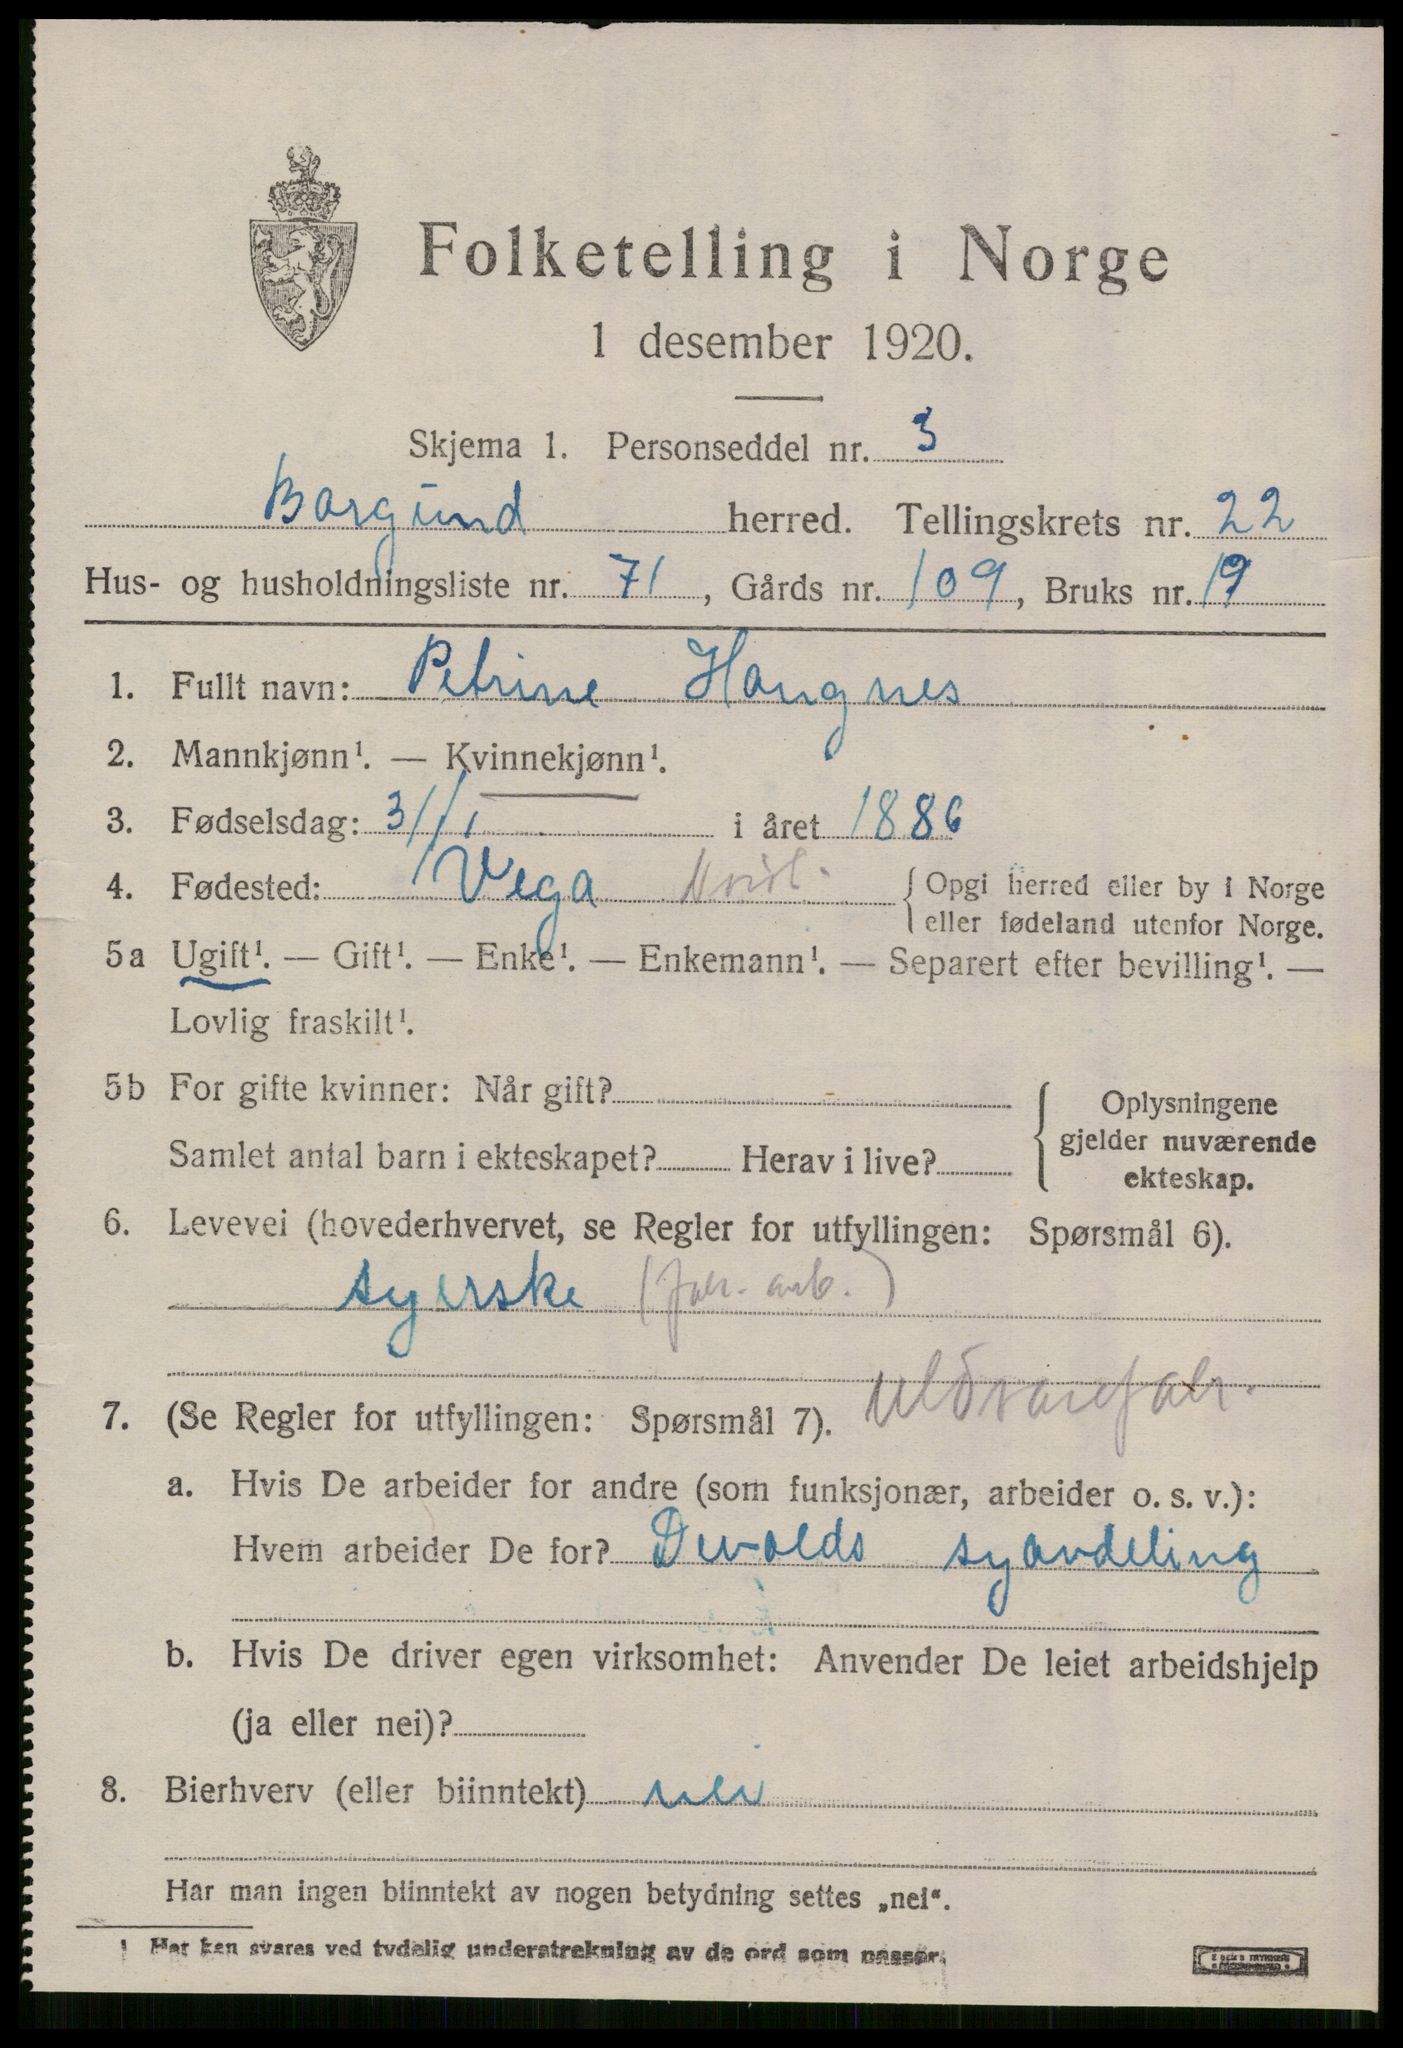 Folketelling i Norge
1 desember 1920.
Skjema 1. Personseddel nr. 3
Borgund herred. Tellingskrets nr. 22
Hus- og husholdningsliste nr. 71, Gårds nr. 109, Bruks nr. 19
1. Fullt navn: Petrine Haugnes
2. Mannkjønn¹. — Kvinnekjønn¹.
3. Fødselsdag: 31/1 i året 1886
4. Fødested: Vega { Opgi herred eller by i Norge
eller fødeland utenfor Norge.
5a Ugift¹. — Gift¹. — Enke¹. — Enkemann¹. — Separert efter bevilling¹. —
Lovlig fraskilt¹.
5b For gifte kvinner: Når gift?
Samlet antal barn i ekteskapet? Herav i live?
{ Oplysningene
gjelder nuværende
ekteskap.
6. Levevei (hovederhvervet, se Regler for utfyllingen: Spørsmål 6).
syerske (fabr. arb.)
Uldvarefabr.
7. (Se Regler for utfyllingen: Spørsmål 7).
a. Hvis De arbeider for andre (som funksjonær, arbeider o. s. v.):
Hvem arbeider De for? Devolds syavdeling
b. Hvis De driver egen virksomhet: Anvender De leiet arbeidshjelp
(ja eller nei)?
8. Bierhverv (eller biinntekt) nei
Har man ingen biinntekt av nogen betydning settes „nei“.
¹ Her kan svares ved tydelig understrekning av de ord som passer.